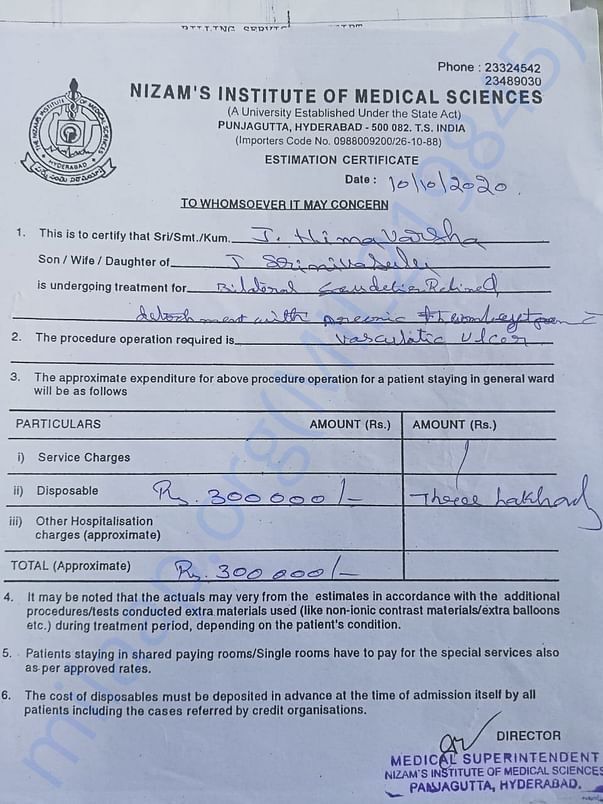 BILLING SERVICE
Phone : 23324542
23489030
NIZAM'S INSTITUTE OF MEDICAL SCIENCES
(A University Established Under the State Act)
PUNJAGUTTA, HYDERABAD - 500 082. T.S. INDIA
(Importers Code No. 0988009200/26-10-88)
THE NIZAM'S INSTITUTE OF MEDICAL SCIENCES
HYDERABAD
ESTIMATION CERTIFICATE
Date : 10/10/2020.
TO WHOMSOEVER IT MAY CONCERN
1. This is to certify that Sri/Smt./Kum. J. Himavarsha
Son / Wife / Daughter of J Srinivasulu
is undergoing treatment for Bilateral Retinal
detachment with
2. The procedure operation required is Vasculatic Ulcer
3. The approximate expenditure for above procedure operation for a patient staying in general ward
will be as follows
PARTICULARS AMOUNT (Rs.) AMOUNT (Rs.)
i) Service Charges
ii) Disposable Rs. 300000/- Three Lakhad
iii) Other Hospitalisation
charges (approximate)
TOTAL (Approximate) Rs. 300000/-
4. It may be noted that the actuals may very from the estimates in accordance with the additional
procedures/tests conducted extra materials used (like non-ionic contrast materials/extra balloons
etc.) during treatment period, depending on the patient's condition.
5. Patients staying in shared paying rooms/Single rooms have to pay for the special services also
as per approved rates.
6. The cost of disposables must be deposited in advance at the time of admission itself by all
patients including the cases referred by credit organisations.
DIRECTOR
MEDICAL SUPERINTENDENT
NIZAM'S INSTITUTE OF MEDICAL SCIENCES
PANJAGUTTA, HYDERABAD.